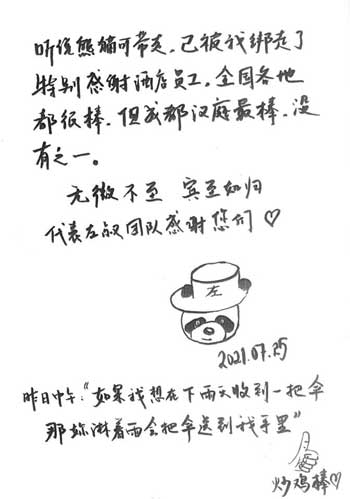 听说熊猫可带走，已被我绑走了
特别感谢酒店员工，全国各地
都很棒，但成都汉庭最棒，没
有之一。
无微不至 宾至如归
代表左叔团队感谢您们♡
左
2021.07.25
昨日中午："如果我想在下雨天收到一把伞
那妳淋着雨会把伞送到我手里"
炒鸡棒♡